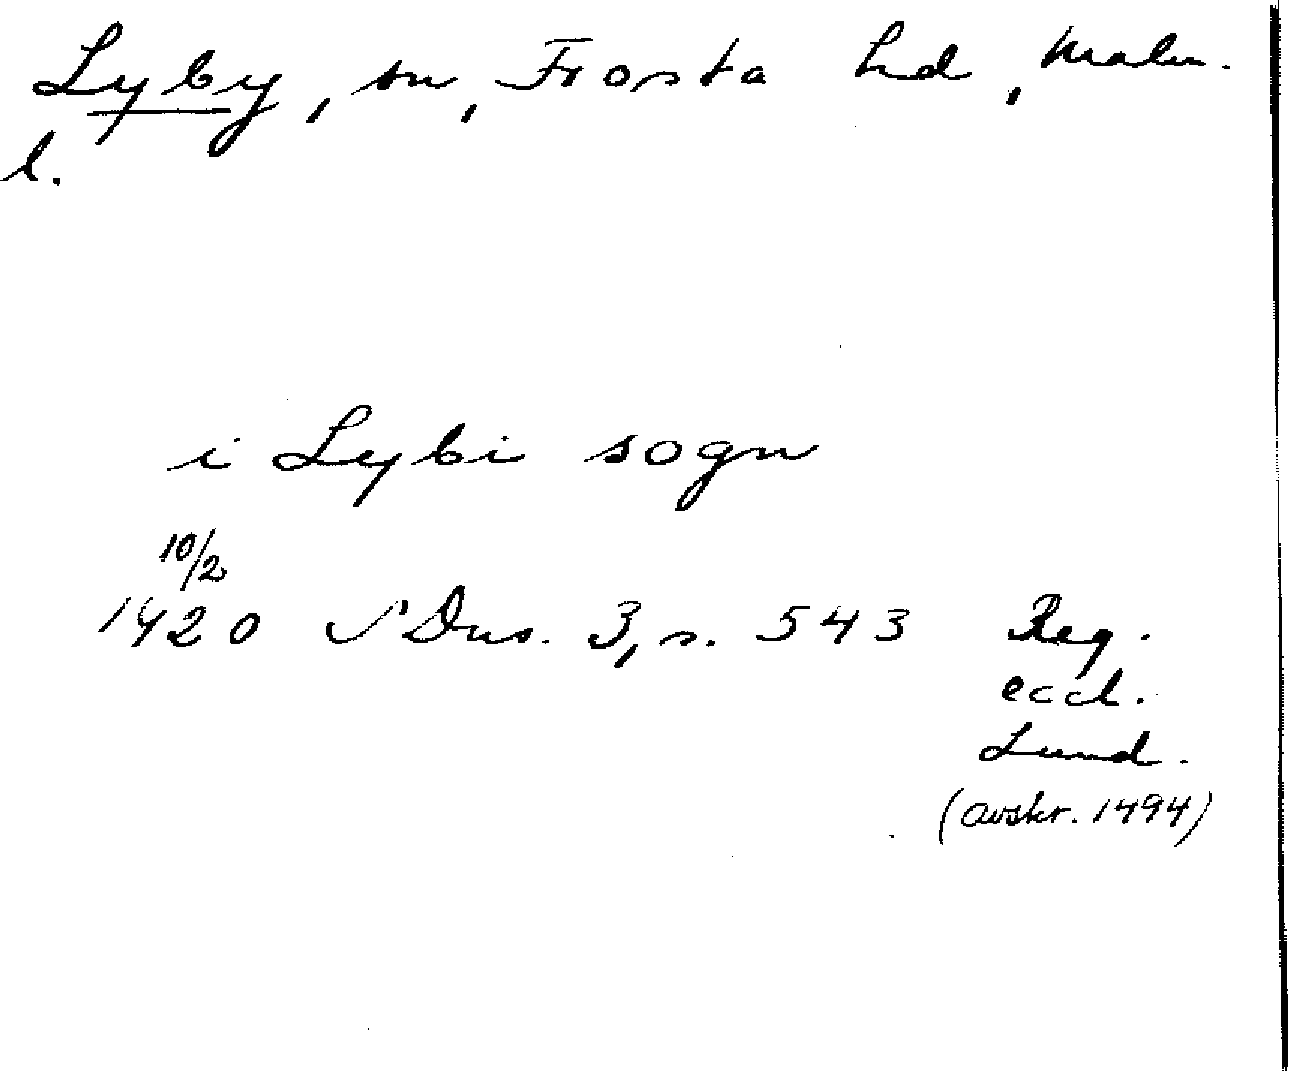 Lyby, sn, Frosta hd, Malm.
l.
i Lybi sogn
10/2
1420 SDns. 3, s. 543 Reg.
eccl.
Lund.
(avskr. 1494)